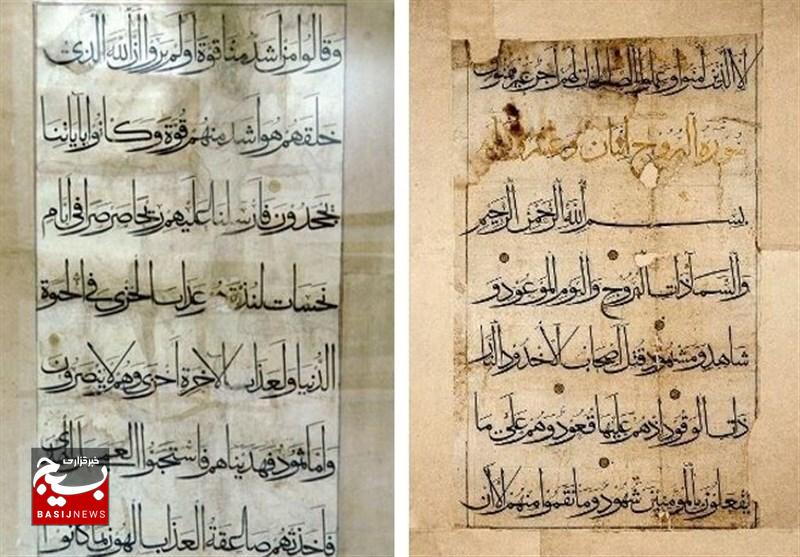 الا الذين امنوا وعملوا الصالحات لهم اجر غير ممنون
سورة البروج اثنان وعشرون
بسم الله الرحمن الرحيم
والسماء ذات البروج واليوم الموعود و
شاهد ومشهود قتل اصحاب الاخدود النار
ذات الوقود اذ هم عليها قعود وهم على ما
يفعلون بالمومنين شهود وما نقموا منهم الا ان
وقالوا من اشد منا قوة اولم يروا ان الله الذي
خلقهم هو اشد منهم قوة وكانوا باياتنا
يجحدون فارسلنا عليهم ريحا صرصرا في ايام
نحسات لنذيقهم عذاب الخزي في الحيوة
الدنيا ولعذاب الاخرة اخزى وهم لا ينصرون
واما ثمود فهديناهم فاستحبوا العمى
فاخذتهم صاعقة العذاب الهون بما كانوا
خبرگزاری
بسیج
BASIJNEWS